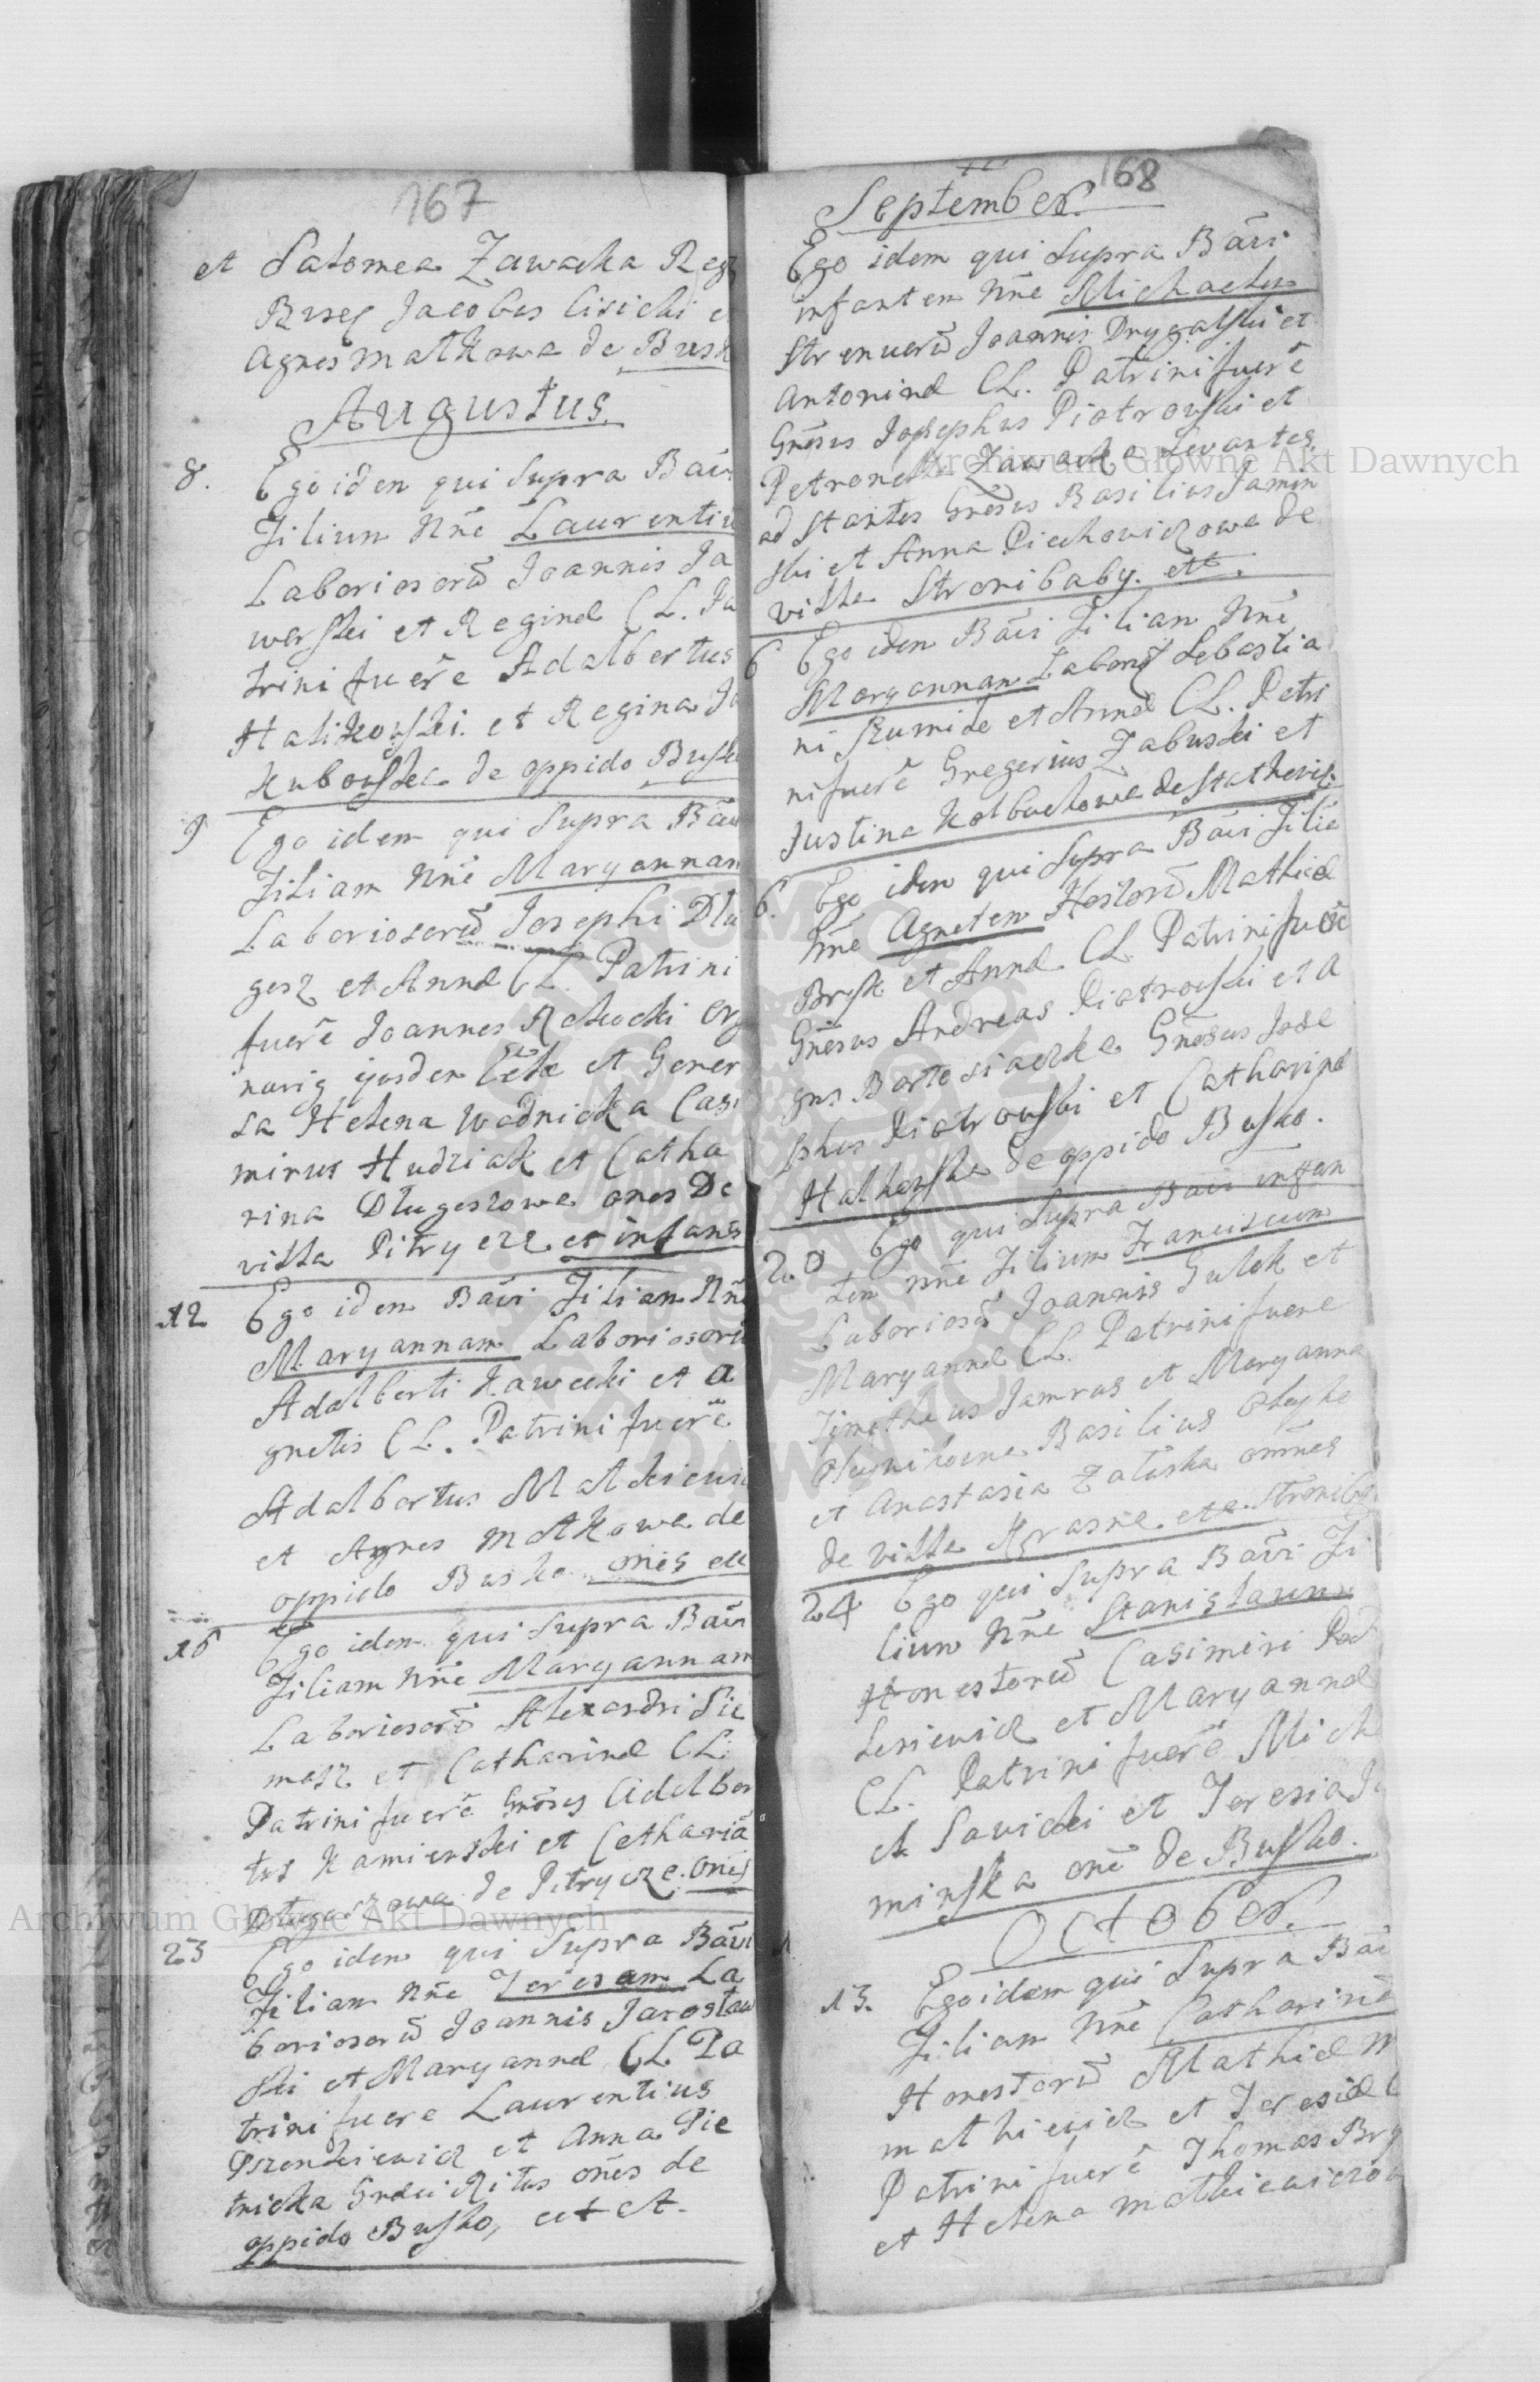 167
et Salomea Zawacka Reg
Busg Jacobus Cisicki e
Agnes Matkowa de Busk
Augustus.
8. Ego idem qui Supra Baū
Filium Nñe Laurentiu
Laboriosorū Joannis Ja
werski et Reginæ CL. Pa
trini fuerē Adalbertus
Halikowski et Regina Ja
kubowska de oppido Busk
9 Ego idem qui Supra Baū
Filiam Nñe Maryannam
Laboriosorū Josephi Dlu
gosz et Annæ CL. Patrini
fuerē Joannes Rchocki org
narig ejusdem et Gener
sa Helena Wodnicka Casi
mirus Hudziak et Catha
rina Dlugoszowa ones De
villa Pitrycze et infans
12 Ego idem Baūi Filiam Nñe
Maryannam Laboriosorū
Adalberti Kawecki et A
gnetis CL. Patrini fuerē
Adalbertus Malkiewic
et Agnes Matkowa de
oppido Busko ones etc
15 Ego idem qui Supra Baūi
Filiam Nñe Maryannam
Laboriosorū Alexandri Pie
masz et Catharinæ CL.
Patrini fuerē Gnōsus Adalber
tus Kamienski et Catharia
Dlugoszowa de Pitrycze ones
23 Ego idem qui Supra Baūi
Filiam Nñe Teresam La
boriosorū Joannis Jaroslaw
ski et Maryannæ CL Pa
trini fuere Laurentius
Pszenkiewicz et Anna Pie
tricka Græci Ritus ones de
oppido Busko, et ct.
168
September.
Ego idem qui Supra Baūi
infantem Nñe Michaelem
Strenuerū Joannis Drygalski et
Antoninæ CL. Patrini fuerē
Gnesus Josephus Piotrowski et
Petronella Zawacka Levantes,
ad Stantes Gnesus Basilius Jamin
ski et Anna Piechowiczowa de
villa Stronibaby. etc.
6 Ego idem Baūi Filiam Nñe
Maryannam Labor Sebastia
ni Rumide et Annæ CL. Patri
ni fuerē Gregerius Zabuski et
Justina Kolbuchowa de
6. Ego idem qui Supra Baūi Filiā
Nñe Agnetem Hostorū Mathiæ
Brysk et Annæ CL Patrini fuerē
Gnesus Andreas Piotrowski et A
gns Bartosiacka Gnesus Jose
phus Piotrowski et Catharinæ
Halkowska de oppido Busko.
20 Ego qui Supra Baūi infan
tem Nñe Filium Franciscum
Laboriosū Joannis Gulek et
Maryannæ CL. Patrini fuere
Timotheus Jamras et Maryanna
Basilius Oleyko
et Anastasia Zaluska omnes
de villa Krasne etc. Stronibg.
24 Ego qui Supra Baūi Fi
lium Nñe Stanislaum
Honestorū Casimiri Pod
lesiewicz et Maryannæ
CL. Patrini fuerē Mich
el Sawicki et Teresia Ja
minska onē de Busko.
October.
13. Ego idem qui Supra Baū
Filiam Nñe Catharinā
Honestorū Mathiæ M
athiewicz et Teresiæ C
Patrini fuerē Thomas Bry
et Helena Mathiewiczow
Archiwum Główne Akt Dawnych
Archiwum Główne Akt Dawnych